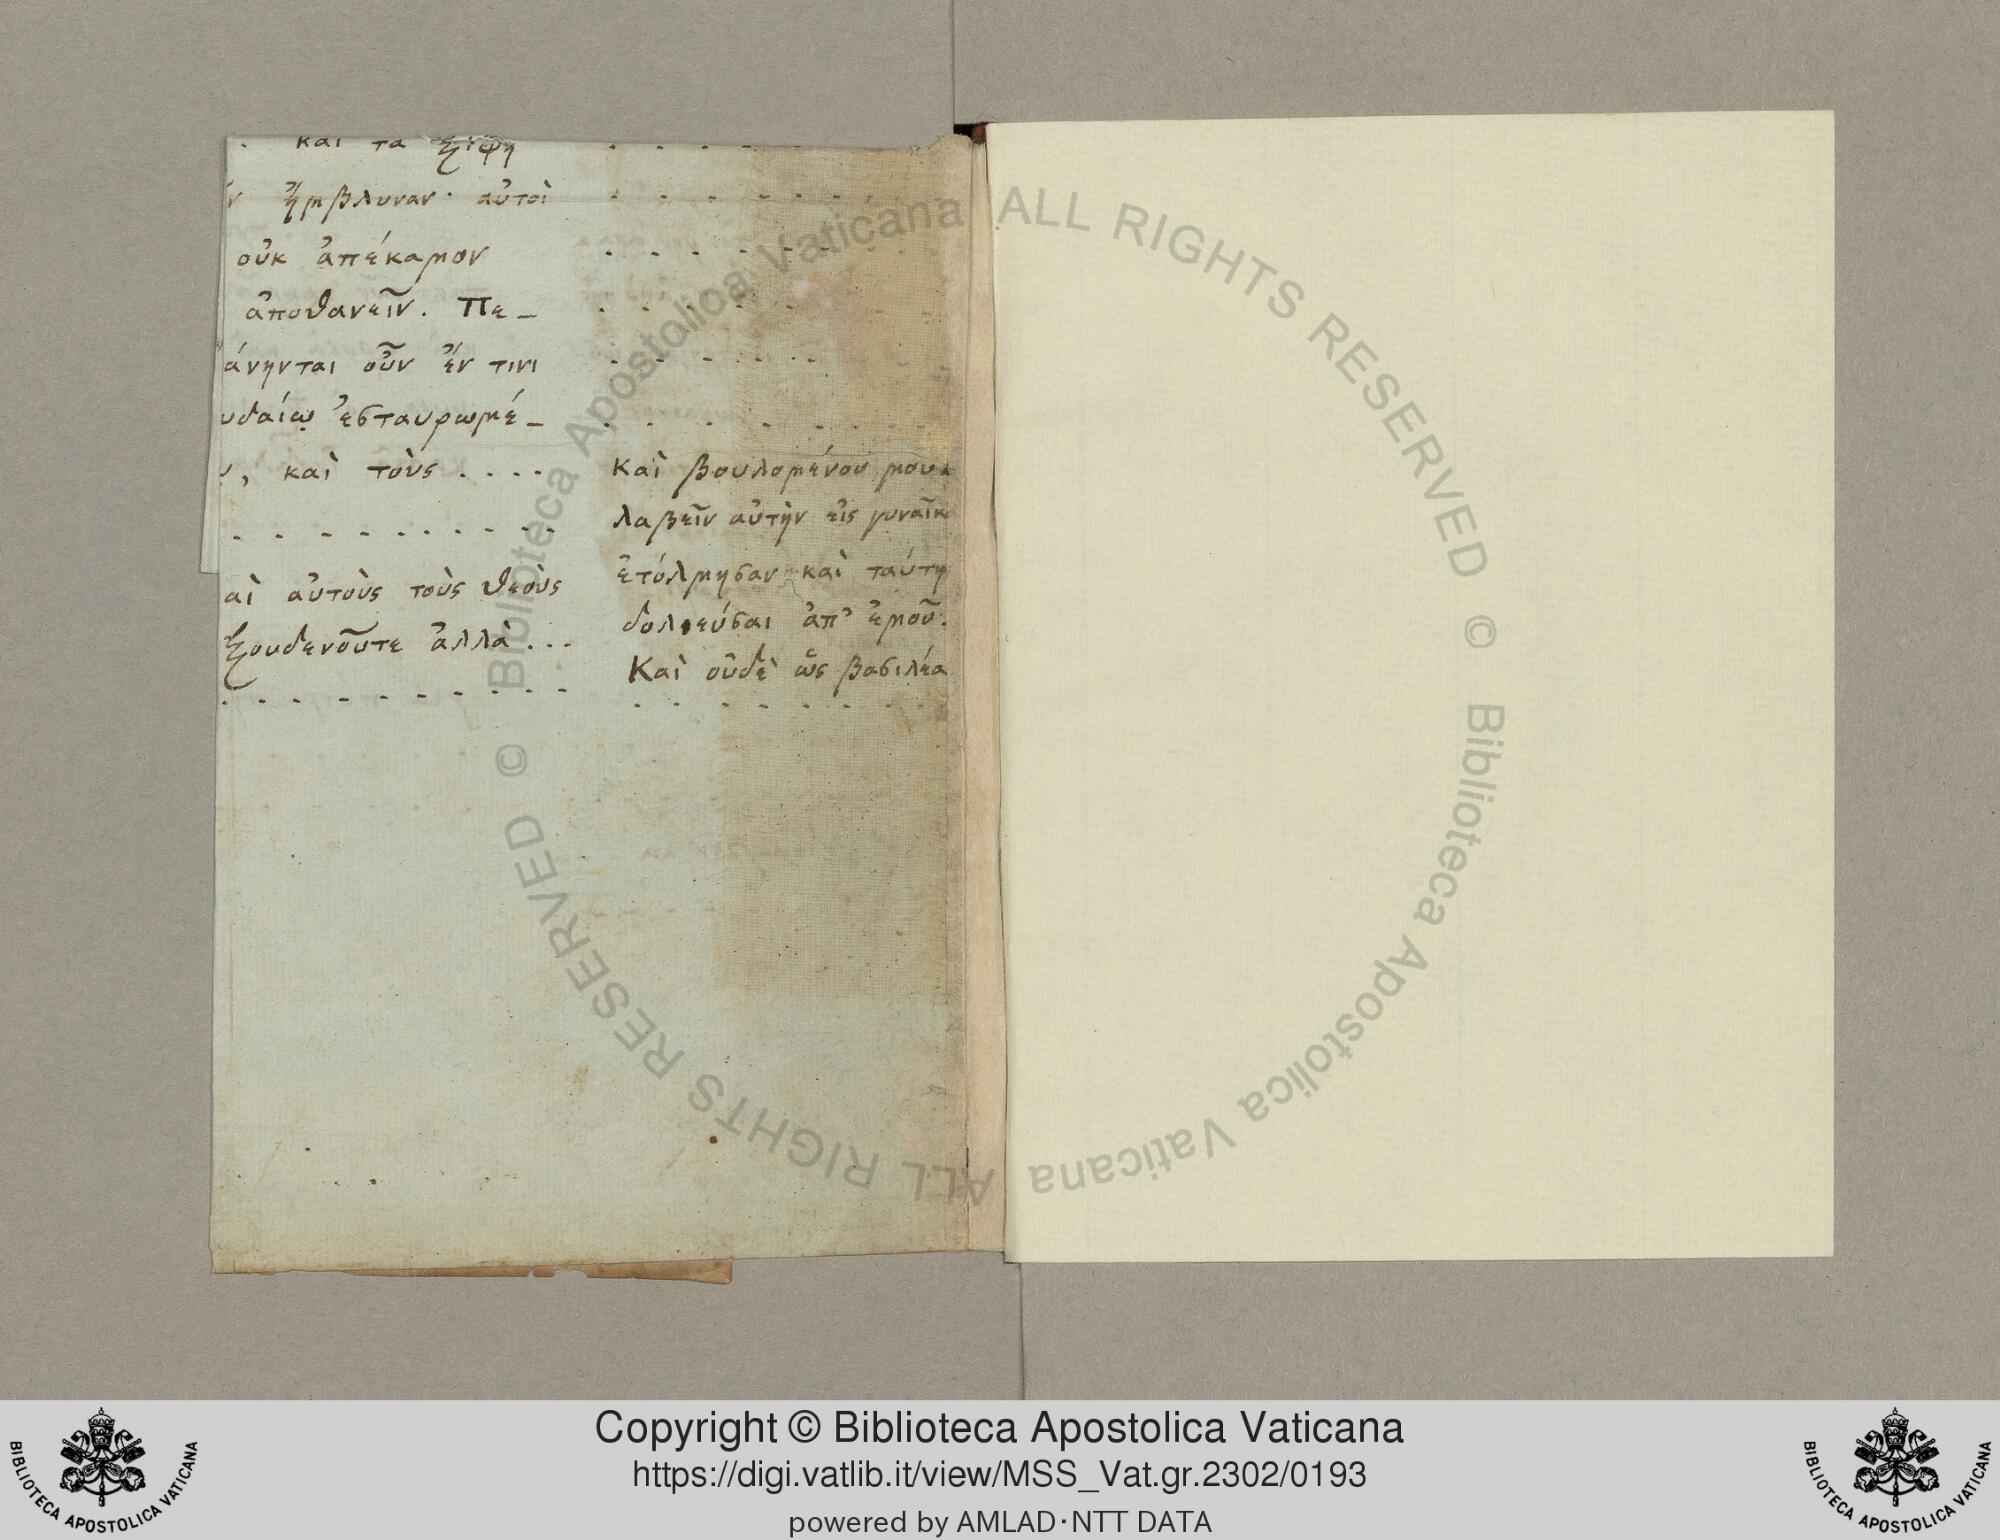 . και τα ξίφη
ν ἤμβλυναν· αὐτοὶ
οὐκ ἀπέκαμον
ἀποθανεῖν. Πε_
άνηνται οὖν ἔν τινι
υδαίῳ ἐσταυρωμέ_
υ, καὶ τοὺς . . . .
. . . . . . . . . .
αὶ αὐτοὺς τοὺς θεοὺς
ξουδενοῦτε ἀλλὰ . . .
. . . . . . . . . .
. . . . .
. . . . . . .
. . . . . . . .
. . . . .
. . . . . .
. . . . . . . . .
Καὶ βουλομένου μου
λαβεῖν αὐτὴν εἰς γυναῖκ
ἐτόλμησαν καὶ ταύτη
δολιεύσαι ἀπ' ἐμοῦ.
Καὶ οὐδὲ ὣς βασιλέα
. . . . . . . .
ALL RIGHTS RESERVED © Biblioteca Apostolica Vaticana
ALL RIGHTS RESERVED © Biblioteca Apostolica Vaticana
Copyright © Biblioteca Apostolica Vaticana
https://digi.vatlib.it/view/MSS_Vat.gr.2302/0193
powered by AMLAD·NTT DATA
BIBLIOTECA APOSTOLICA VATICANA
BIBLIOTECA APOSTOLICA VATICANA